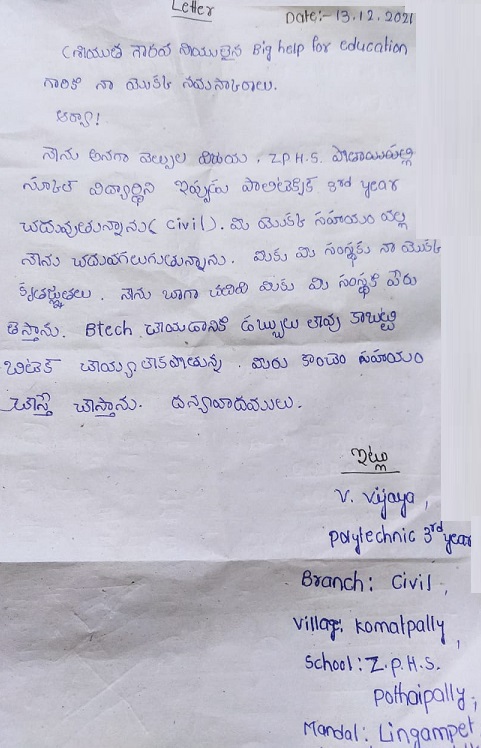 Letter
Date:- 13.12.2021
శ్రీయుత గౌరవ నీయులైన Big help for education
గారికి నా యొక్క నమస్కారాలు.
ఆర్యా!
నేను అనగా వెల్పుల విజయ. Z.P.H.S. పోతాయిపల్లి
స్కూల్ విద్యార్థిని ఇప్పుడు పాలిటెక్నిక్ 3rd year
చదువుతున్నాను( civil). మీ యొక్క సహాయం వల్ల
నేను చదువగలుగుతున్నాను. మీకు మీ సంస్థకు నా యొక్క
కృతజ్ఞతలు. నేను బాగా చదివి మీకు మీ సంస్థకి పేరు
తెస్తాను. Btech చేయడానికి డబ్బులు లేవు కాబట్టి
బిటెక్ చెయ్యలేకపోతున్న. మీరు కొంచెం సహాయం
చేస్తే చేస్తాను. ధన్యవాదములు.
ఇట్లు
V. Vijaya,
polytechnic 3rd year
Branch: Civil,
Village: Komatpally,
School: Z.P.H.S.
Pothaipally,
Mandal: Lingampet